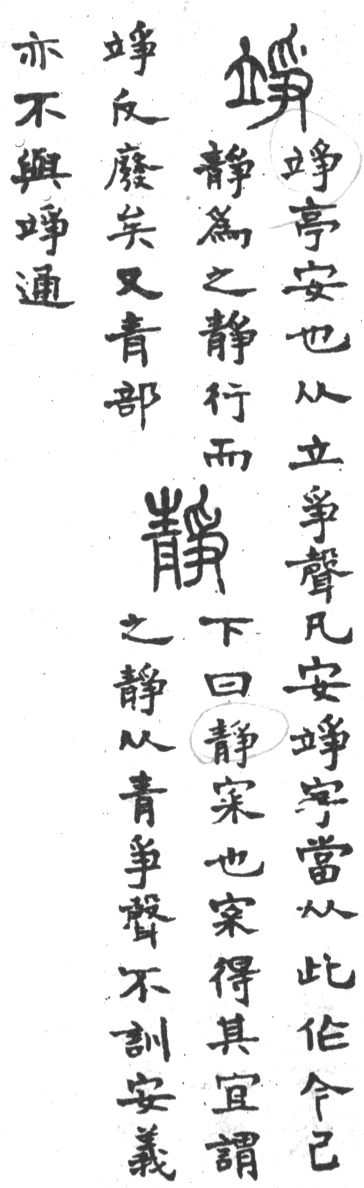 竫
竫亭安也从立爭聲凡安竫字當从此作今已
靜爲之靜行而
竫反廢矣又青部
靜
下曰靜宷也宷得其宜謂
之靜从青爭聲不訓安義
亦不與竫通